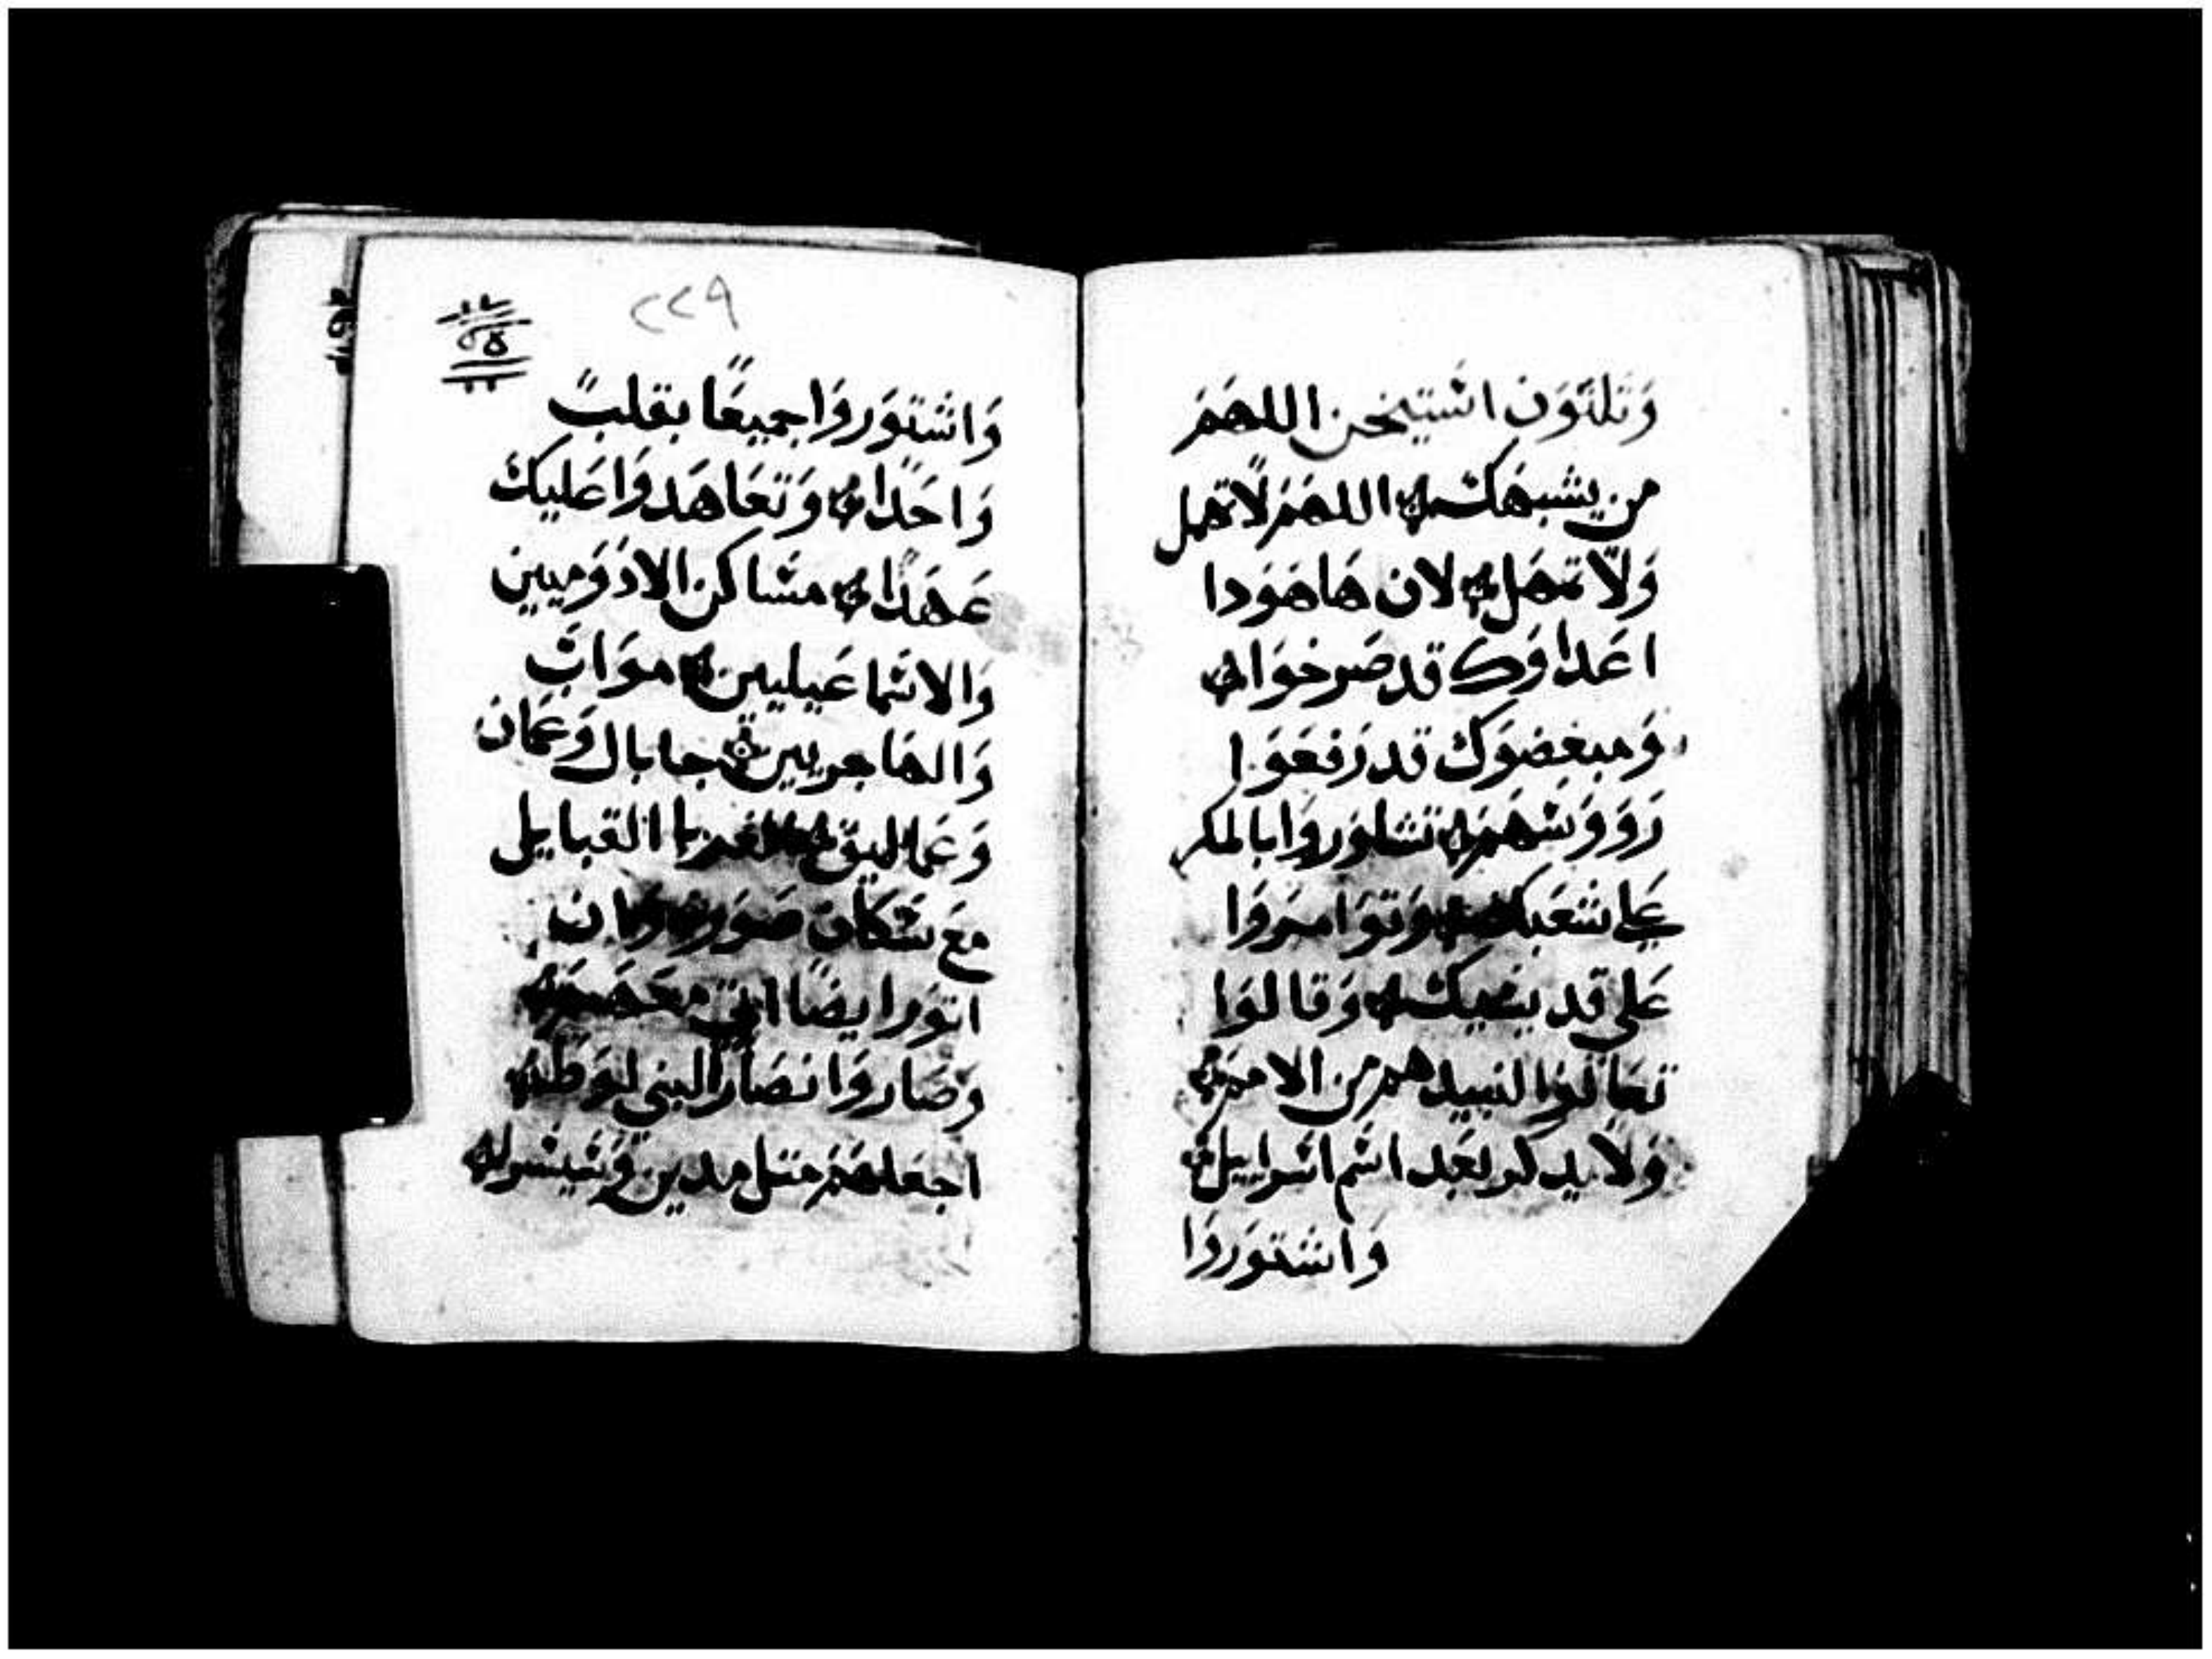 وَتلتوَن اشتيخن اللهَم
من يشبهَك اللهَم لًا تمهل
وَلًا تمهَل لان هَاهوَدا
اعَداوَك قد صَرخوَا
وَمبغضوَك قد رَفعَوَا
رَوَوَسَهَم تشاوَروَا بالمكر
عَلي شعَبك وَتوَامروَا
عَلي قديسيك وَقالوَا
تعَالوَا لنبيدهم من الامم
وَلًا يدكر بعَد اسَم اسَراييل
وَاشتوَروَا
٢٢٩
وَاشتوَروَا جميعًا بقلبً
وَاحَدًا وَتعَاهَدوَا عَليك
عَهَدًا مسَاكن الادوَميين
وَالاسَماعَيليين موَاب
وَالهَاجريين جابال وَعَمان
وَعَماليق الغربا القبايل
معَ سَكان صَوَر وَكان
اتوَر ايضًا اتي معَهَم
وَصَاروَا انصَارًا لبني لوَط
اجعَلهَم متل مدين وَسَيسَرا